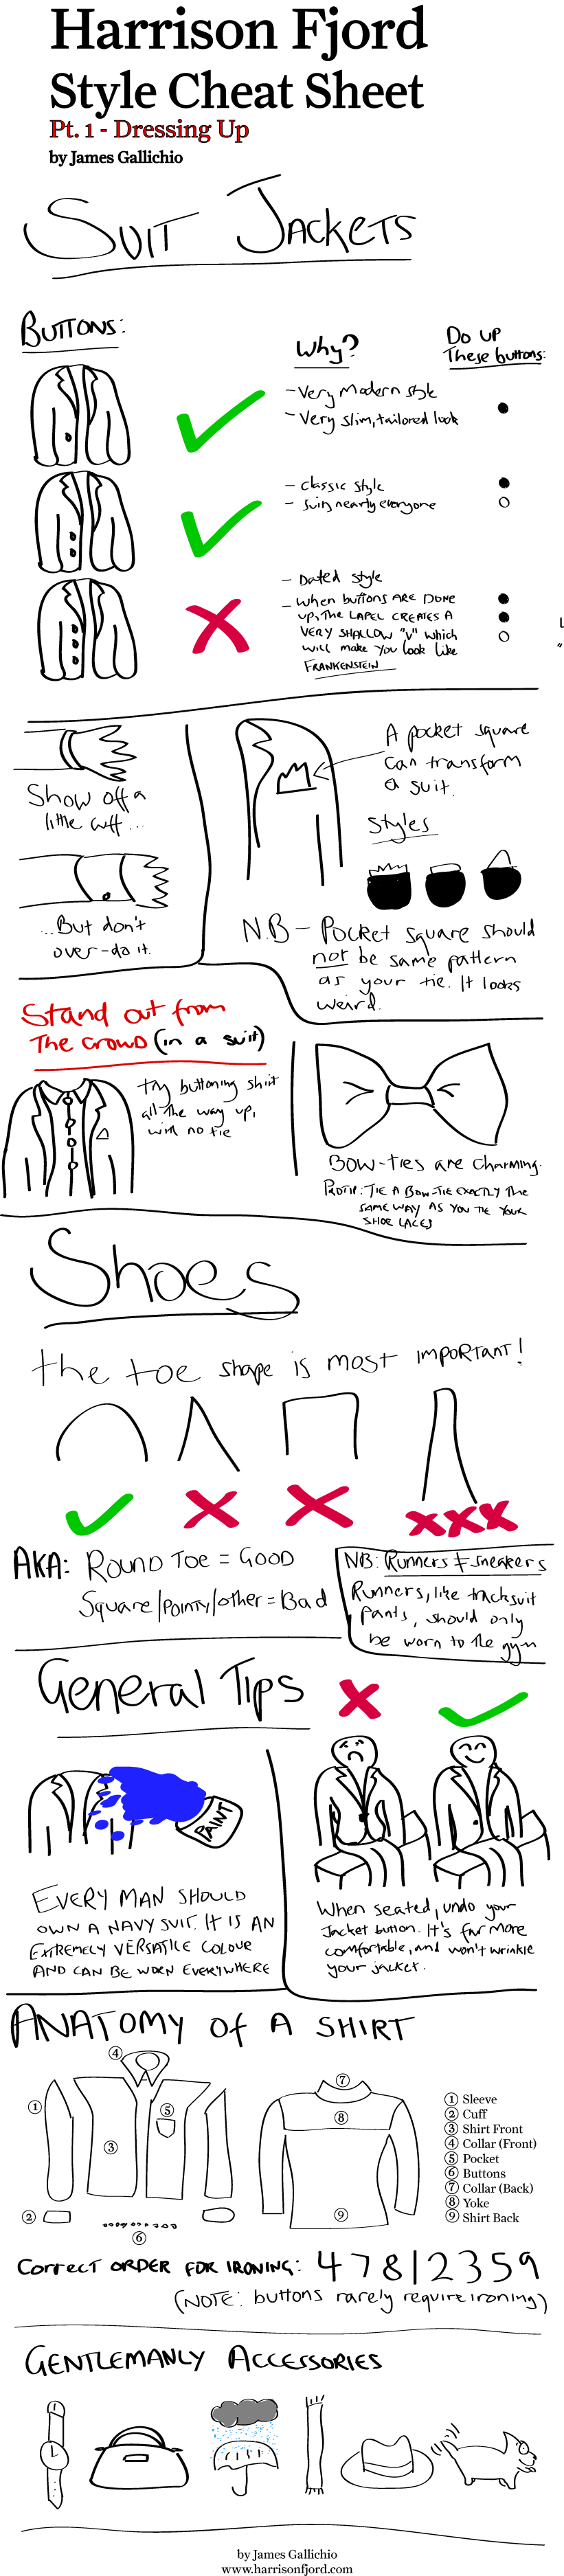 Harrison Fjord
Style Cheat Sheet
Pt. 1 - Dressing Up
by James Gallichio
Suit Jackets
Buttons:
Why?
Do up
These buttons:
- Very Modern style
- Very slim, tailored look
- Classic style
- Suits nearly everyone
- Dated style
- When buttons ARE DONE
up, the LAPEL CREATES A
VERY SHALLOW "V" which
will make you look like
FRANKENSTEIN
L
"
Show off a
little cuff...
...But don't
over-do it.
A pocket square
can transform
a suit.
Styles
N.B - Pocket square should
not be same pattern
as your tie. It looks
weird.
Stand out from
The crowd (in a suit)
try buttoning shirt
all the way up,
with no tie
Bow-ties are charming.
Protip: Tie a bow-tie exactly the
same way as you tie your
shoe laces
Shoes
the toe shape is most IMPORTANT!
AKA: Round Toe = Good
Square/pointy/other = Bad
NB: Runners ≠ sneakers
Runners, like tracksuit
pants, should only
be worn to the gym
General Tips
PAINT
EVERY MAN SHOULD
OWN A NAVY SUIT. IT IS AN
EXTREMELY VERSATILE COLOUR
AND CAN BE WORN EVERYWHERE
When seated, undo your
Jacket button. It's far more
comfortable, and won't wrinkle
your jacket.
ANATOMY of A SHIRT
4
1
5
3
2
6
7
8
9
1 Sleeve
2 Cuff
3 Shirt Front
4 Collar (Front)
5 Pocket
6 Buttons
7 Collar (Back)
8 Yoke
9 Shirt Back
Correct ORDER FOR IRONING: 4 7 8 1 2 3 5 9
(NOTE: buttons rarely require ironing)
GENTLEMANLY ACCESSORIES
by James Gallichio
www.harrisonfjord.com